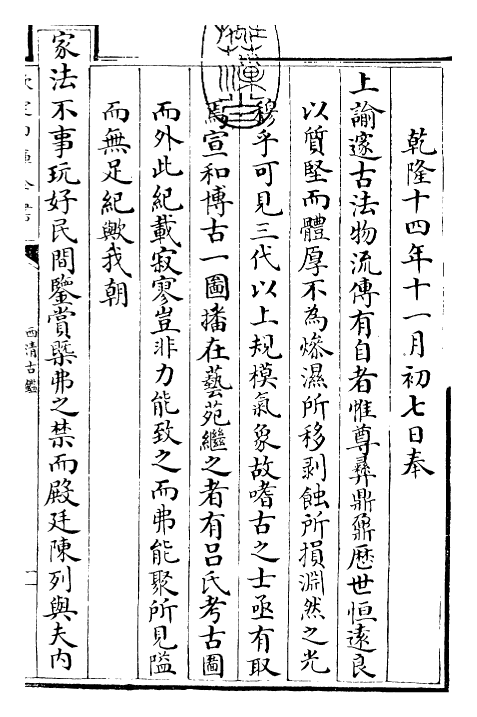 乾隆十四年十一月初七日奉
上諭邃古法物流傳有自者惟尊彝鼎鼐歷世恒遠良
以質堅而體厚不為燥濕所移剝蝕所損淵然之光
穆乎可見三代以上規模氣象故嗜古之士亟有取
焉宣和博古一圖播在藝苑繼之者有呂氏考古圖
而外此紀載寂寥豈非力能致之而弗能聚所見隘
而無足紀歟我朝
家法不事玩好民間鑒賞槩弗之禁而殿廷陳列與夫内
西清古鑑
一